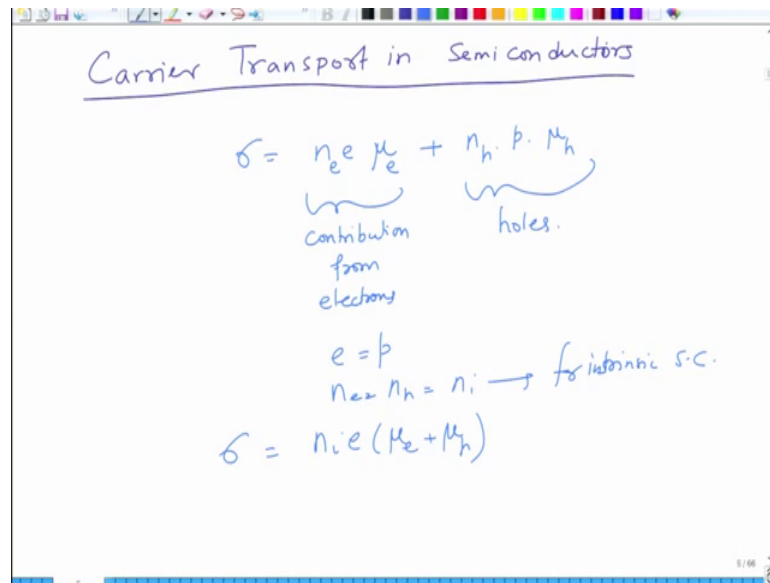 Carrier Transport in Semiconductors
σ = nₑ e μₑ + nₕ. p. μₕ
contribution from electrons
holes.
e = p
nₑ = nₕ = nᵢ → for intrinsic s.c.
σ = nᵢ e (μₑ + μₕ)
5 / 66